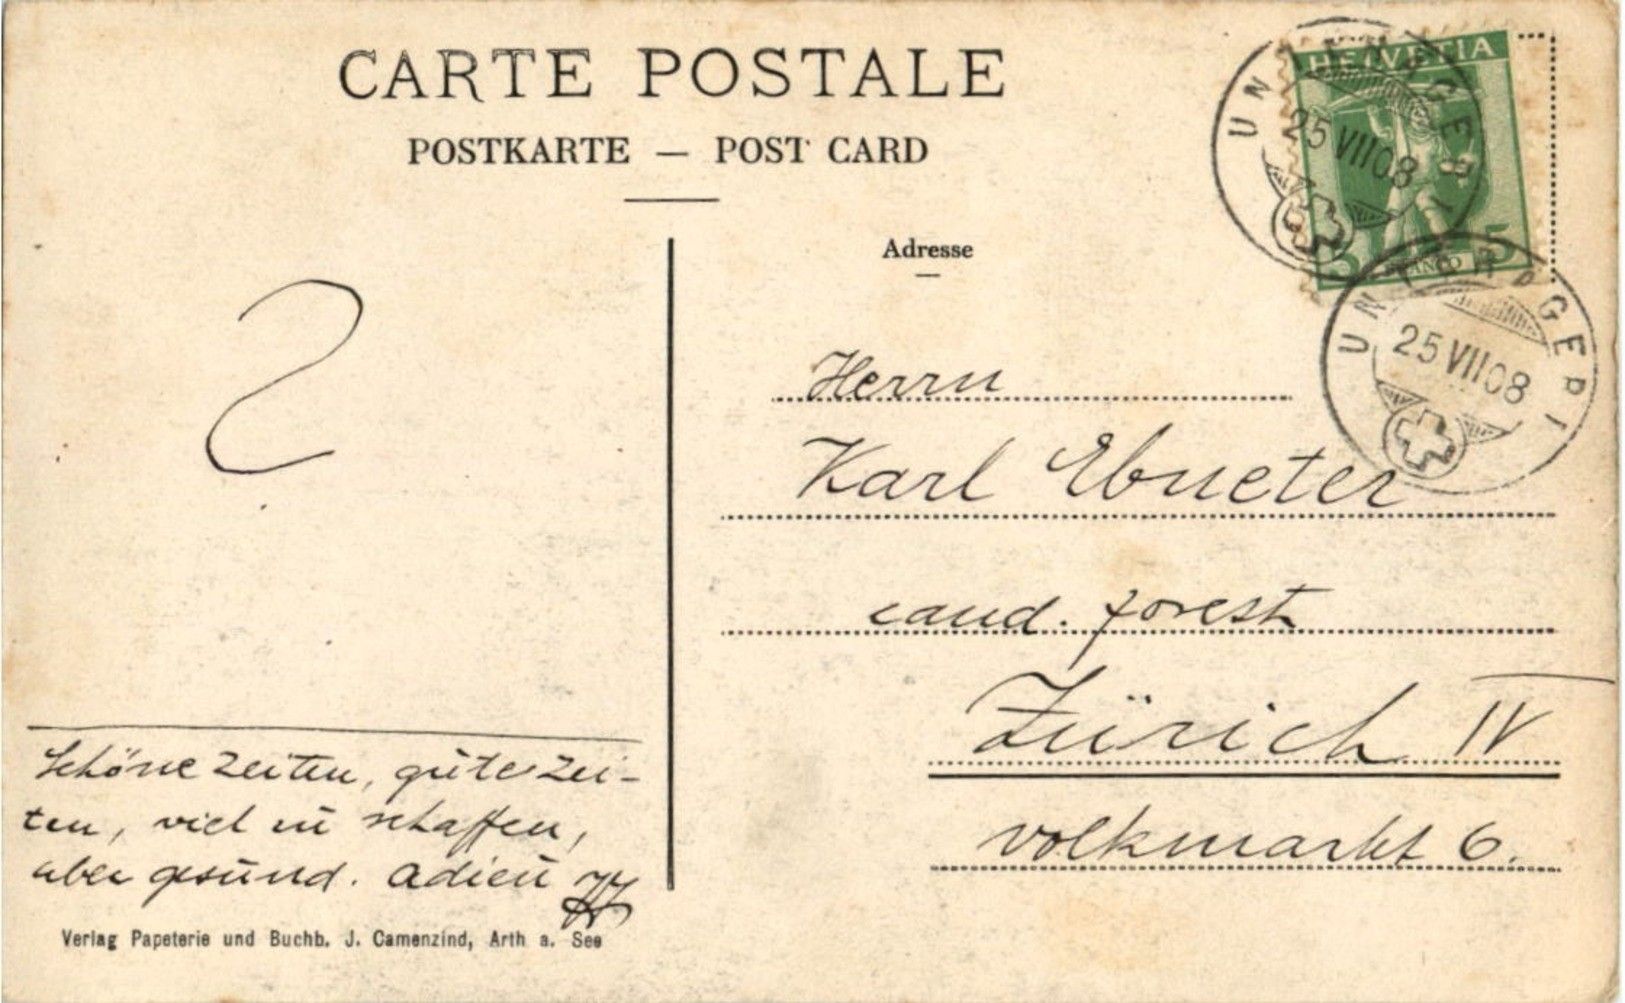 CARTE POSTALE
POSTKARTE — POST CARD
HELVETIA
25 VII 08
5
FRANCO
UNTERÄGERI
25 VII 08
Adresse
Herrn
Karl Ebneter
cand. forest
Zürich IV
Volkmarkt 6.
2
Schöne Zeiten, gute Zei-
ten, viel zu schaffen,
aber gesund. Adieu
Verlag Papeterie und Buchb. J. Camenzind, Arth a. See